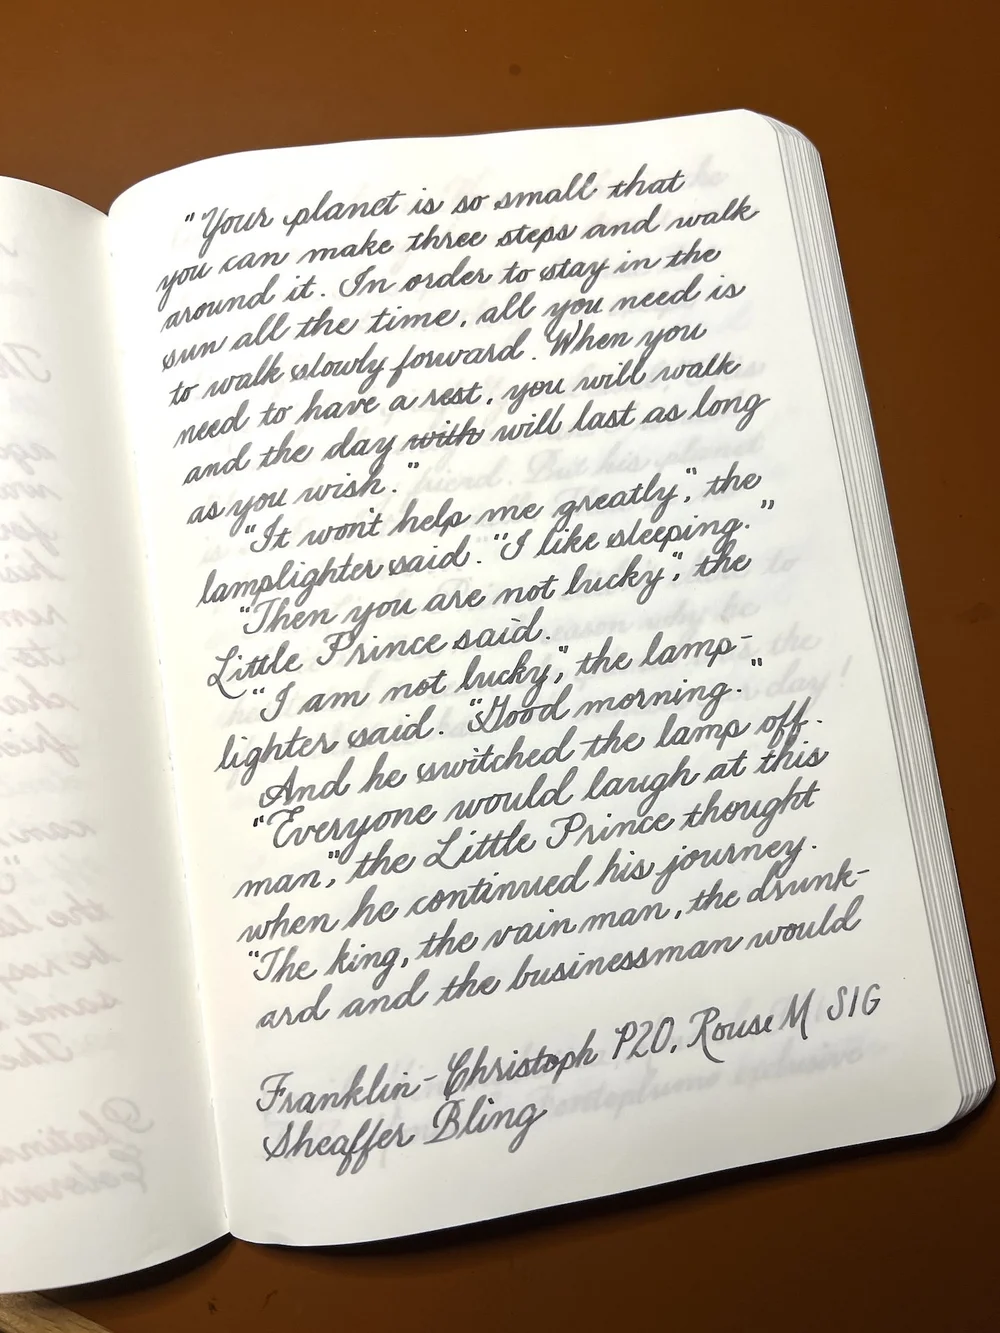 "Your planet is so small that
you can make three steps and walk
around it. In order to stay in the
sun all the time, all you need is
to walk slowly forward. When you
need to have a rest, you will walk
and the day with will last as long
as you wish."
"It won't help me greatly", the
lamplighter said. "I like sleeping."
"Then you are not lucky", the
Little Prince said.
"I am not lucky", the lamp-
lighter said. "Good morning."
And he switched the lamp off.
"Everyone would laugh at this
man", the Little Prince thought
when he continued his journey.
"The king, the vain man, the drunk-
ard and the businessman would
Franklin-Christoph P20, Rouse M SIG
Sheaffer Bling